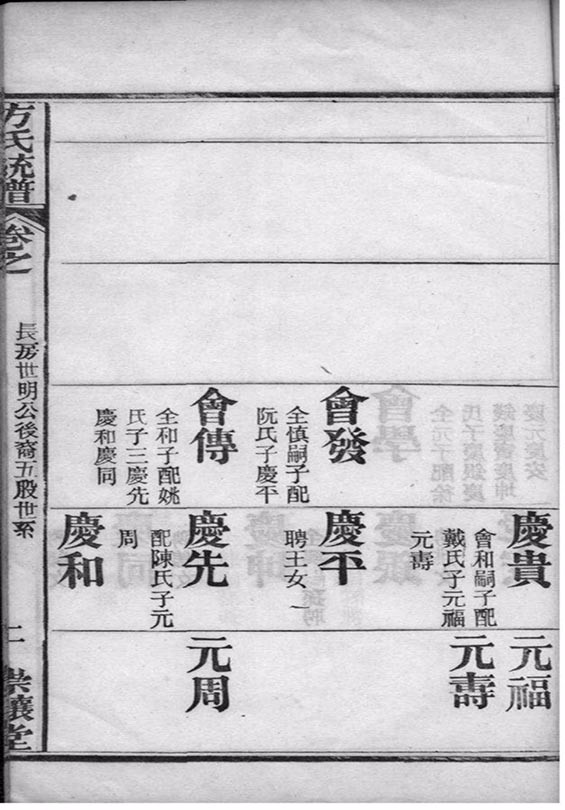 會發
全慎嗣子配
阮氏子慶平
會傳
全和子配姚
氏子三慶先
慶和慶同
慶貴
會和嗣子配
戴氏子元福
元壽
慶平
聘王女
慶先
配陳氏子元
周
慶和
元福
元壽
元周
方氏統譜
卷之
長房世明公後裔五股世系
二
崇讓堂